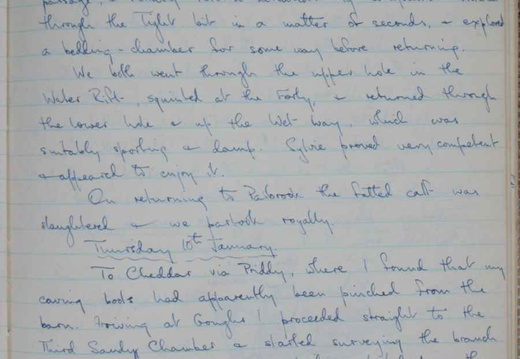 through the Tight bit in a matter of seconds, & explored
a bedding-chamber for some way before returning.
We both went through the upper hole in the
Water Rift, squinted at the Forty, & returned through
the lower hole & up the Wet Way, which was
suitably sporting & damp. Sylvie proved very competent
& appeared to enjoy it.
On returning to the fatted calf was
slaughtered & we partook royally.
Thursday 10th January.
To Cheddar via Priddy, where I found that my
caving boots had apparently been pinched from the
barn. Arriving at Goughs I proceeded straight to the
Third Sandy Chamber & started surveying the branch